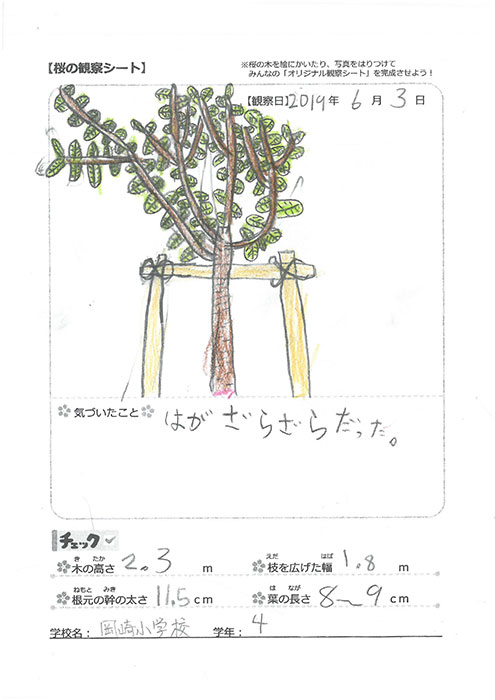 【桜の観察シート】
※桜の木を絵にかいたり、写真をはりつけて
みんなの「オリジナル観察シート」を完成させよう！
【観察日】2019年 6月 3日
気づいたこと はがざらざらだった。
チェック
き たか
木の高さ 2.3 m
えだ はば
枝を広げた幅 1.8 m
ねもと みき
根元の幹の太さ 11.5 cm
は なが
葉の長さ 8〜9 cm
学校名： 岡崎小学校 学年： 4